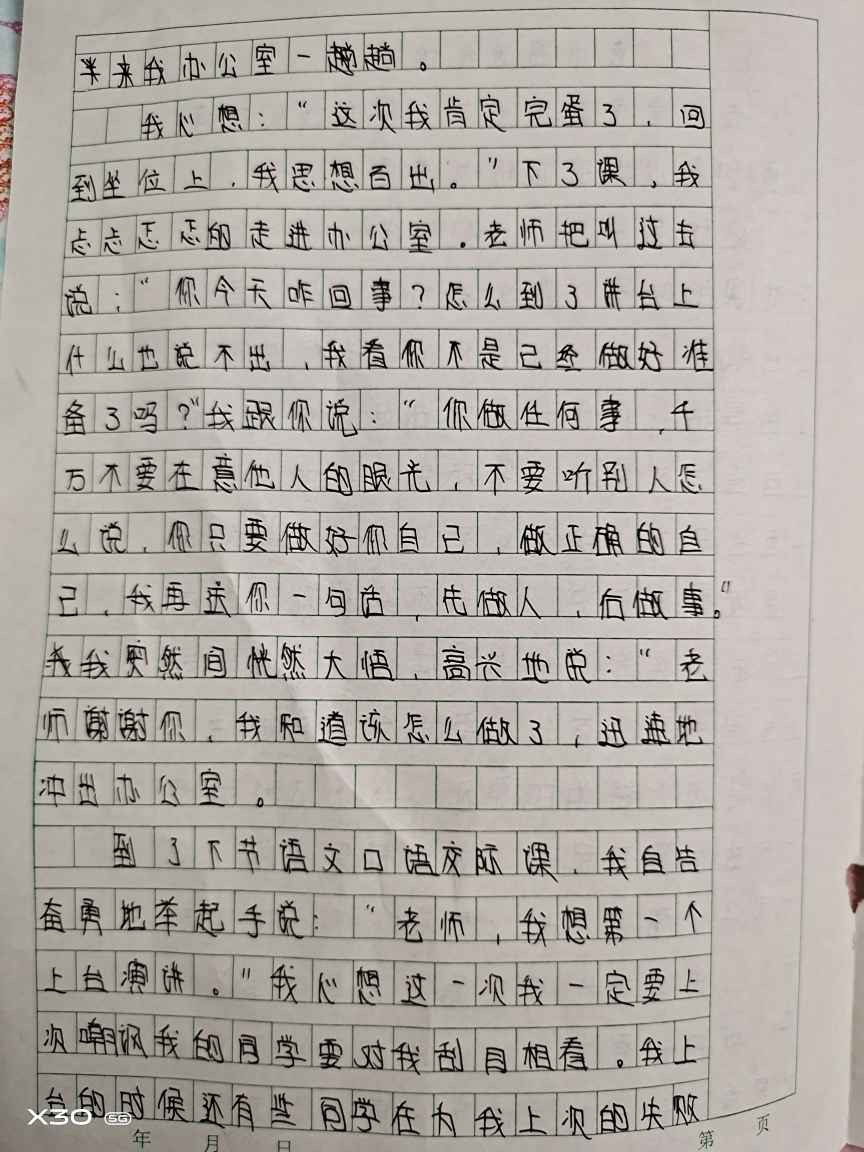 来我办公室一趟趟。
我心想：“这次我肯定完蛋了，回
到坐位上，我思想百出。”下了课，我
忐忐忑忑的走进办公室。老师把叫过去
说：“你今天咋回事？怎么到了讲台上
什么也说不出，我看你不是已经做好准
备了吗？”我跟你说：“你做任何事，千
万不要在意他人的眼光，不要听别人怎
么说，你只要做好你自己，做正确的自
己，我再送你一句话，先做人，后做事。”
我突然间恍然大悟，高兴地说：“老
师谢谢你，我知道该怎么做了，迅速地
冲出办公室。
到了下节语文口语交际课，我自告
奋勇地举起手说：“老师，我想第一个
上台演讲。”我心想这一次我一定要上
次嘲讽我的同学要对我刮目相看。我上
台的时候还有些同学在为我上次的失败
X30 5G
年 月 日 第 页